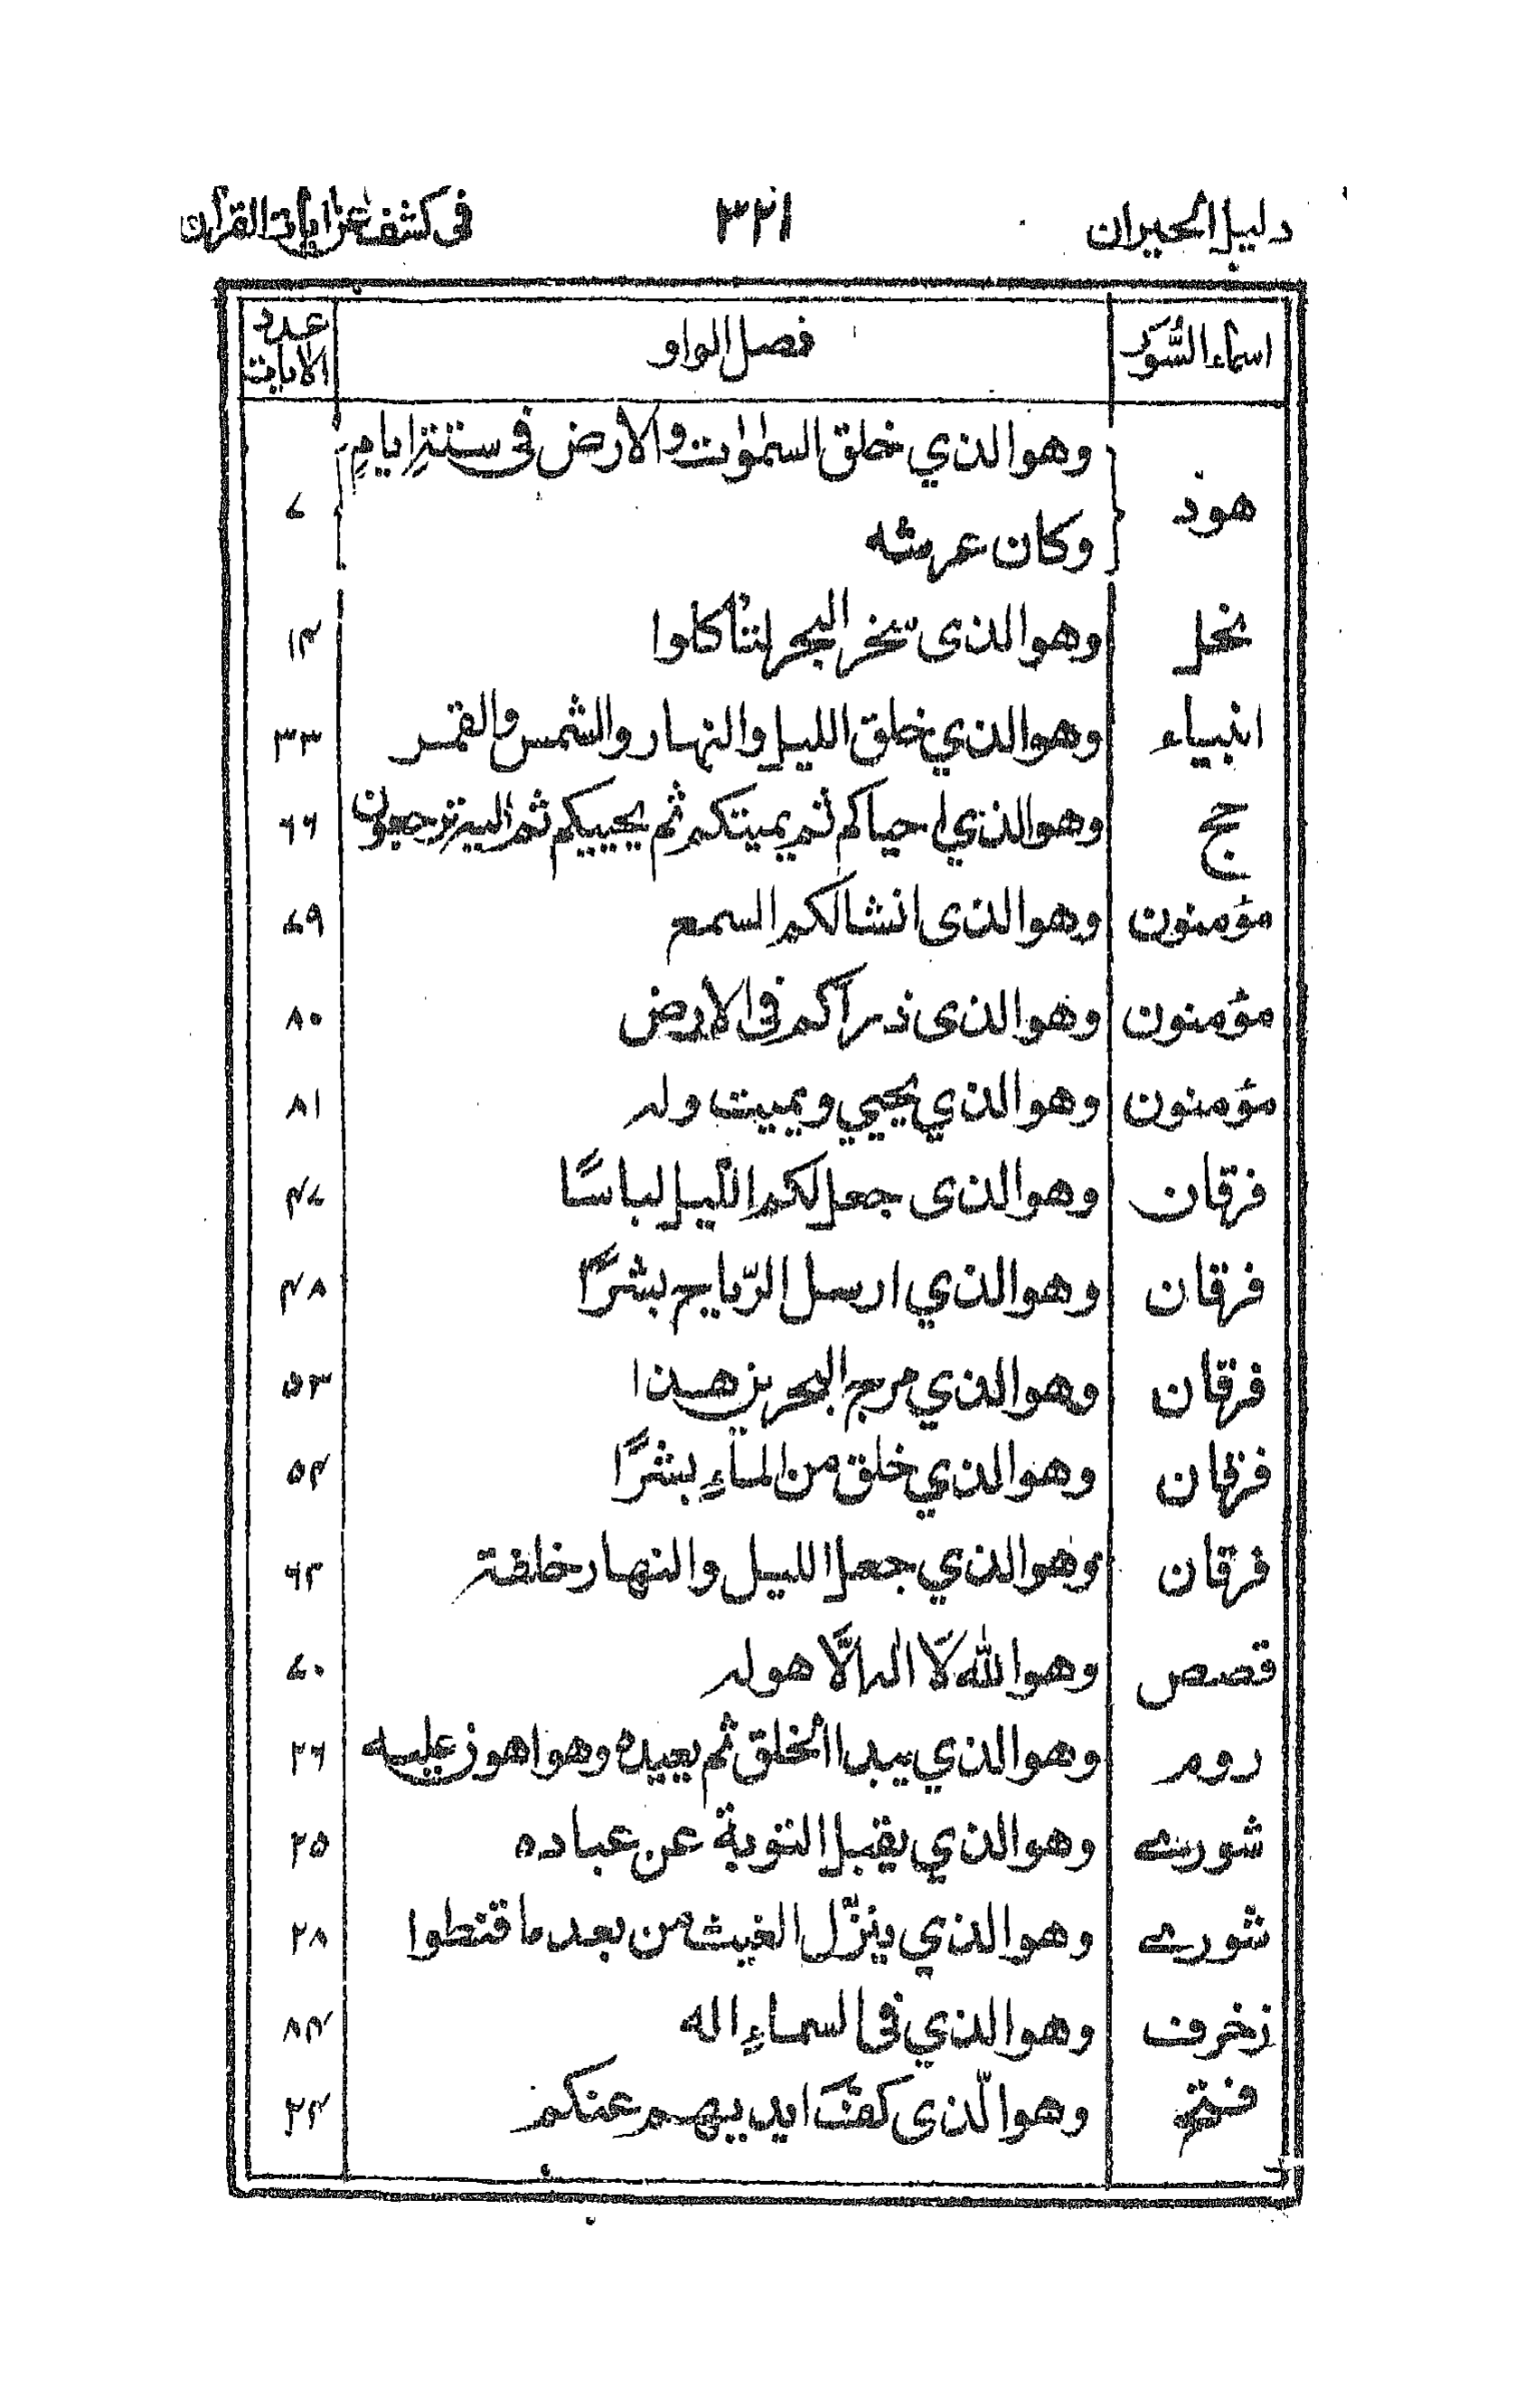 دليل الحيران ٣٢١ فى كشف عن ايات القرآن
اسماء السُّوَر فصل الواو عدد الايات
هود وهوالذي خلق السمٰوٰت والارض فى ستة ايامٍ ٧
وكان عرشه
نحل وهوالذى سخر البحر لتأكلوا ١٤
انبياء وهوالذي خلق الليل والنهار والشمس والقمر ٣٣
حج وهوالذي احياكم ثم يميتكم ثم يحييكم ثم اليه ترجعون ٦٦
مؤمنون وهوالذى انشالكم السمع ٧٩
مؤمنون وهوالذى ذرأكم فى الارض ٨٠
مؤمنون وهوالذي يحيي ويميت وله ٨١
فرقان وهوالذى جعل لكم الليل لباسًا ٤٧
فرقان وهوالذي ارسل الرّياح بشرًا ٤٨
فرقان وهوالذي مرج البحرين هذا ٥٣
فرقان وهوالذي خلق من المآءِ بشرًا ٥٤
فرقان وهوالذي جعل الليل والنهار خلفة ٦٢
قصص وهوالله لَا اله الَّا هو له ٧٠
روم وهوالذي يبدا الخلق ثم يعيده وهواهون عليه ٢٦
شورے وهوالذي يقبل التوبة عن عباده ٢٥
شورے وهوالذي ينزّل الغيث من بعد ما قنطوا ٢٨
زخرف وهوالذي فى السماءِ اله ٨٤
فتح وهوالّذى كفَّ ايديهم عنكم ٢٤